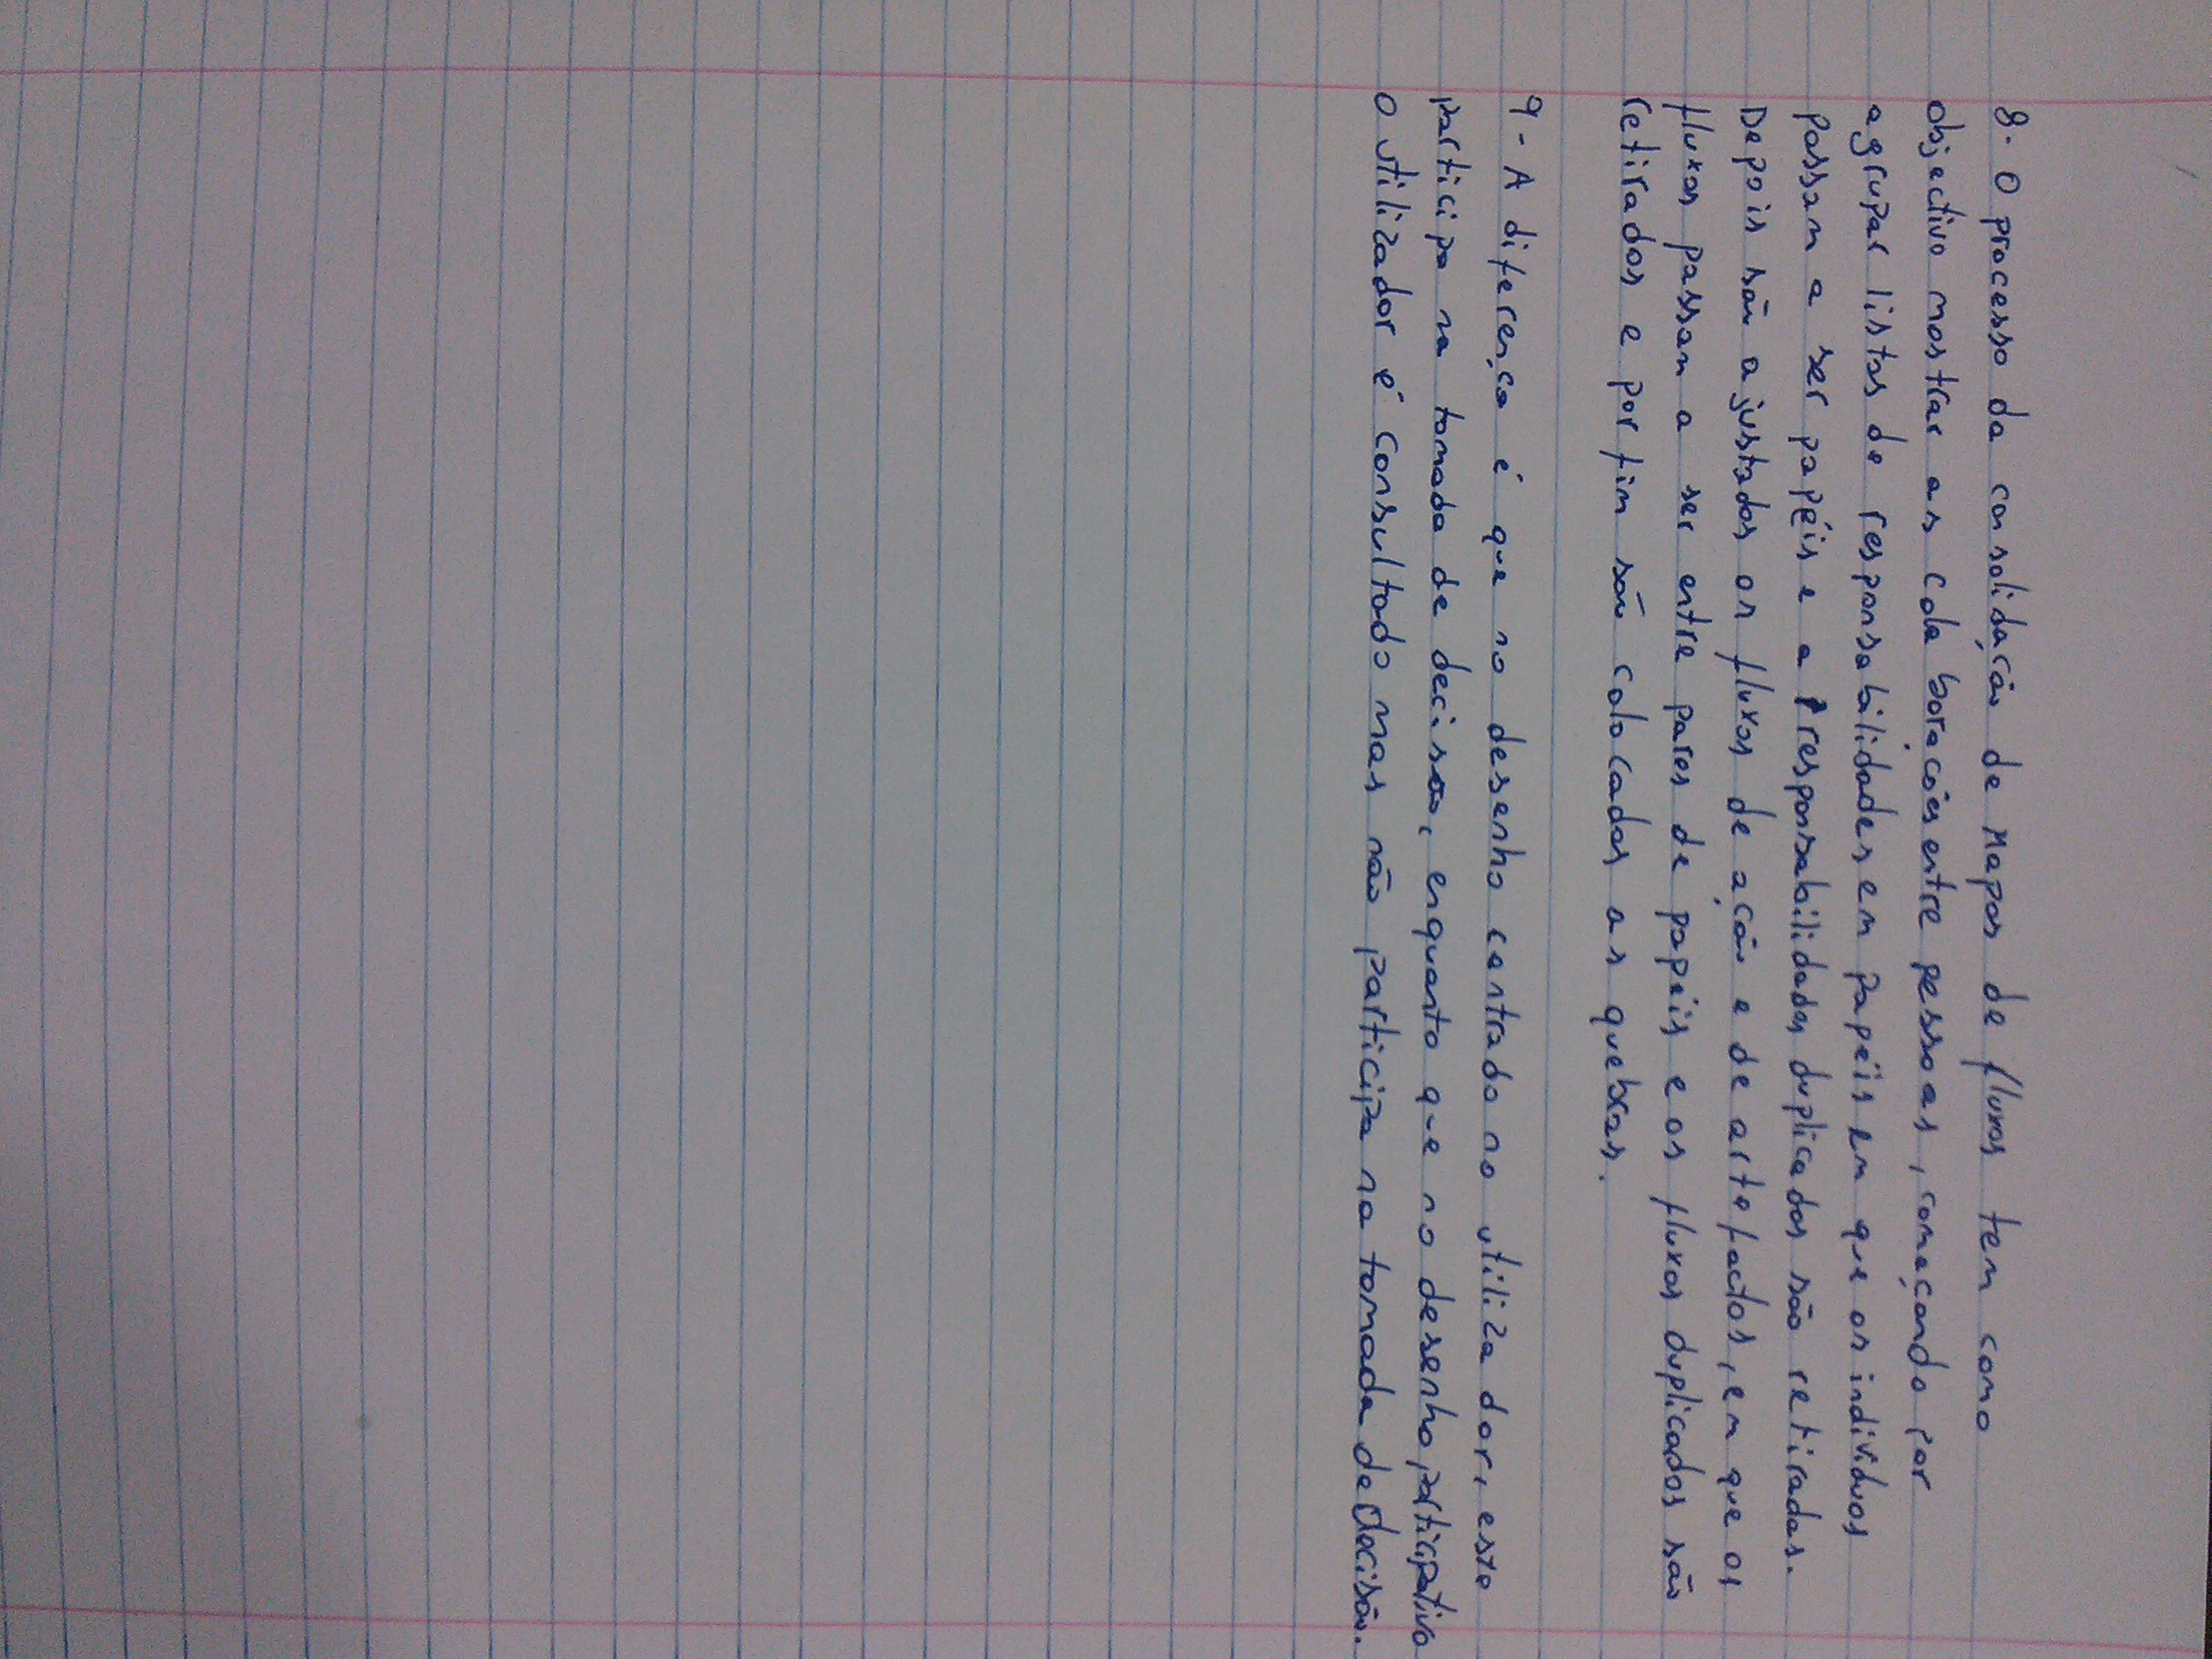 8- O processo da consolidação de Mapas de fluxos tem como
objectivo mostrar as colaborações entre pessoas, começando por
agrupar listas de responsabilidades em papéis em que os indivíduos
passam a ser papéis e a responsabilidades duplicados são retiradas.
Depois são ajustados os fluxos de ação e de artefactos, em que os
fluxos passam a ser entre pares de papéis e os fluxos duplicados são
retirados e por fim são colocados as quebras.
9- A diferença é que no desenho centrado no utilizador, este
participa na tomada de decisão, enquanto que no desenho participativo
o utilizador é consultado mas não participa na tomada de decisão.